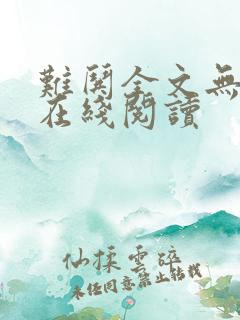 難開全文無
在綫閱讀
仙揉雲碎
未經同意禁止轉載